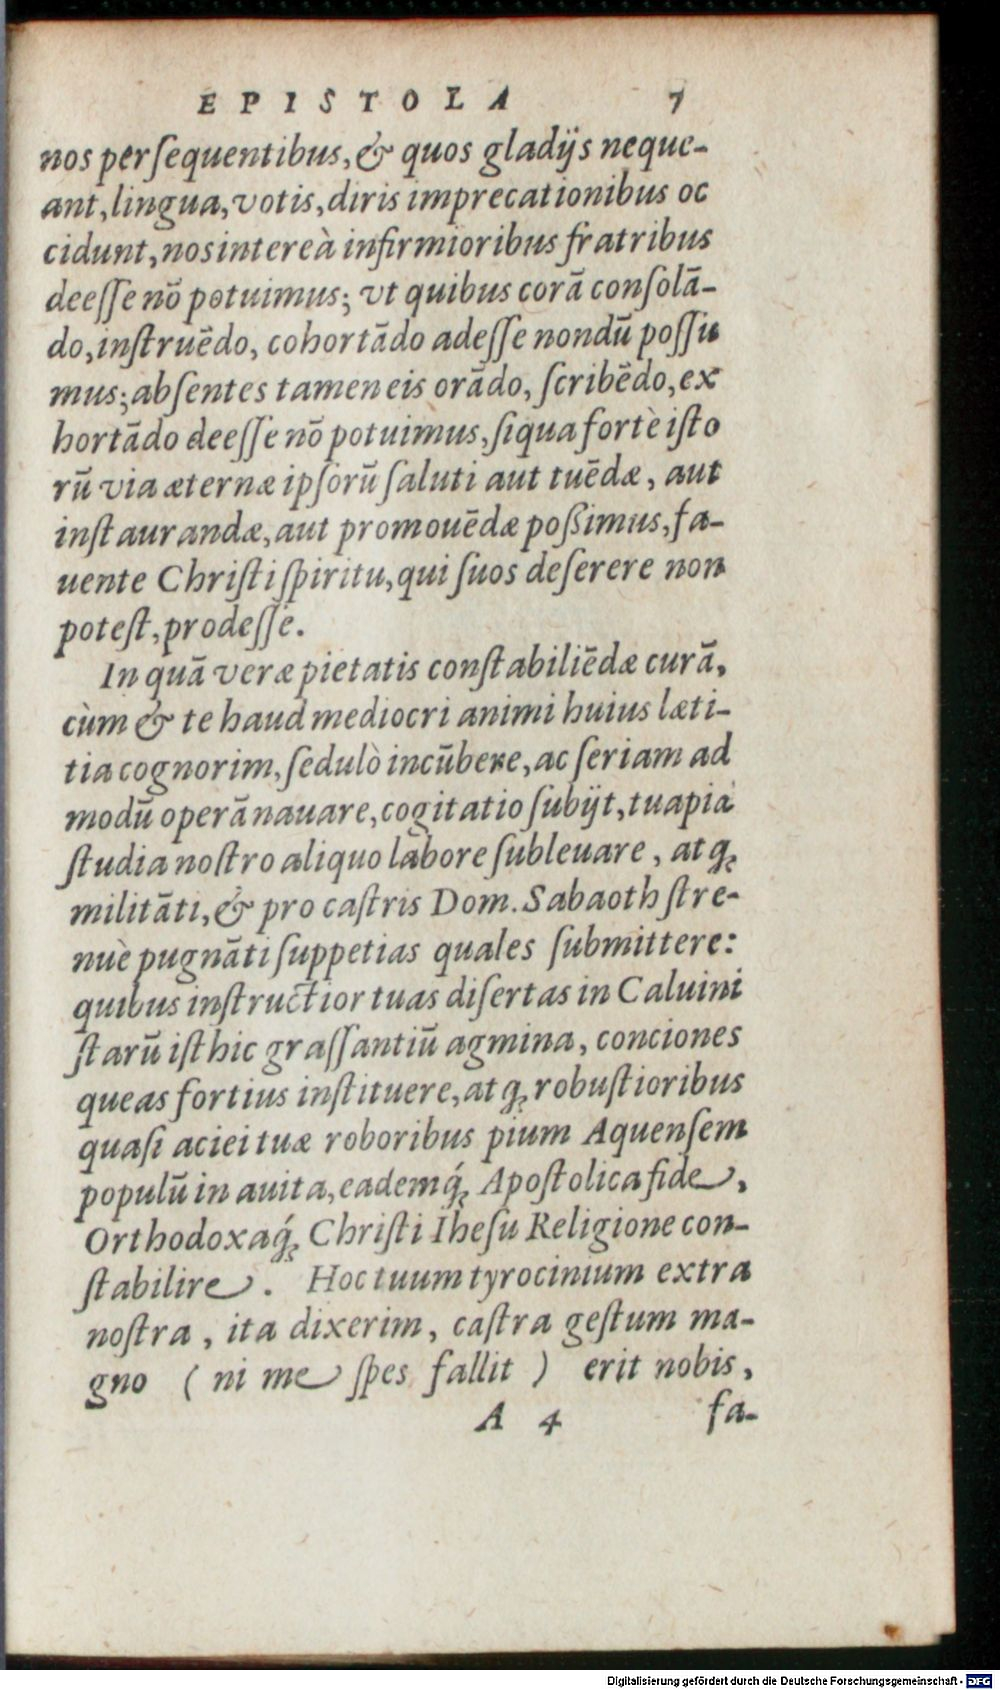 EPISTOLA 7
nos perſequentibus, & quos gladijs neque-
ant, lingua, votis, diris imprecationibus oc
cidunt, nos intereà infirmioribus fratribus
deeſſe nō potuimus; vt quibus corā conſolā-
do, inſtruēdo, cohortādo adeſſe nondū poſſu
mus; abſentes tamen eis orādo, ſcribēdo, ex
hortādo deeſſe nō potuimus, ſiqua fortè iſto
rū via æternæ ipſorū ſaluti aut tuēdæ, aut
inſtaurandæ, aut promouēdæ poßimus, fa-
uente Chriſti ſpiritu, qui ſuos deſerere non
poteſt, prodeſſe.
In quā veræ pietatis conſtabiliēdæ curā,
cùm & te haud mediocri animi huius læti-
tia cognorim, ſedulò incūbere, ac ſeriam ad
modū operā nauare, cogitatio ſubijt, tua pia
ſtudia noſtro aliquo labore ſubleuare, atq;
militāti, & pro caſtris Dom. Sabaoth ſtre-
nuè pugnāti ſuppetias quales ſubmittere:
quibus inſtructior tuas diſertas in Caluini
ſtarū iſthic graſſantiū agmina, conciones
queas fortius inſtituere, atq; robuſtioribus
quaſi aciei tuæ roboribus pium Aquenſem
populū in auita, eademq́; Apoſtolica fide,
Orthodoxaq́; Chriſti Iheſu Religione con-
ſtabilire. Hoc tuum tyrocinium extra
noſtra, ita dixerim, caſtra geſtum ma-
gno (ni me ſpes fallit) erit nobis,
A 4 fa-
Digitalisierung gefördert durch die Deutsche Forschungsgemeinschaft - DFG